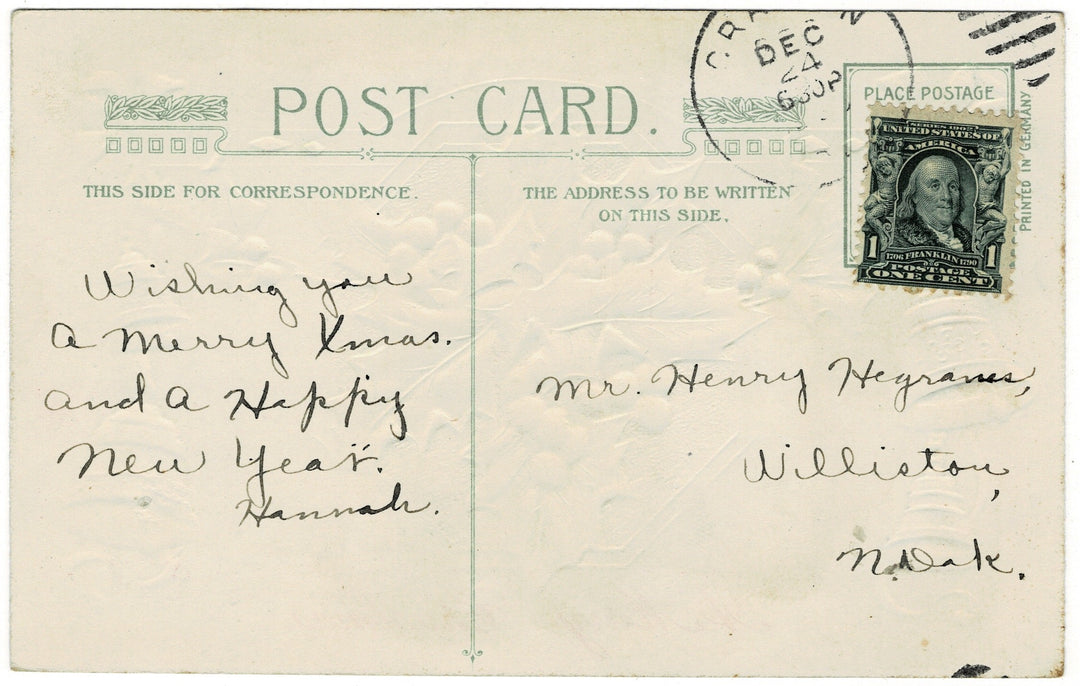 POST CARD.
THIS SIDE FOR CORRESPONDENCE.
THE ADDRESS TO BE WRITTEN
ON THIS SIDE.
DEC
24
630P
PLACE POSTAGE
PRINTED IN GERMANY
SERIES 1902
UNITED STATES OF
AMERICA
1 1
1706 FRANKLIN 1790
POSTAGE
ONE CENT
Wishing you
a Merry Xmas.
and a Happy
New Year.
Hannah.
Mr. Henry
Williston,
N. Dak.